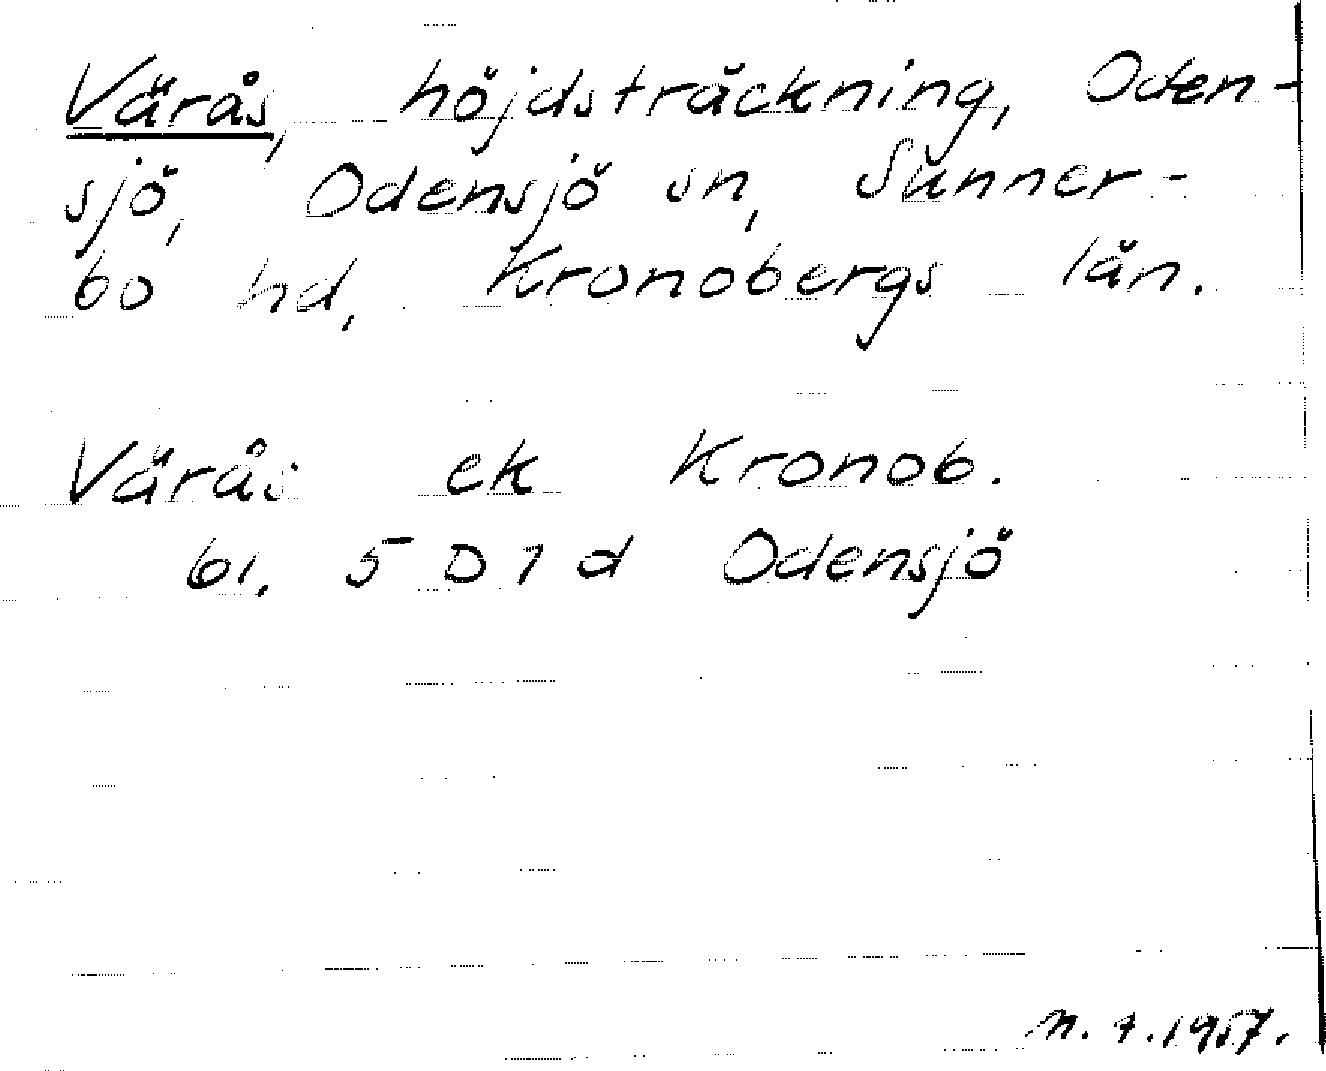 Värås, höjdsträckning, Oden-
sjö, Odensjö sn, Sunner-
bo hd, Kronobergs län.
Värås ek Kronob.
bl. 5 D 1 d Odensjö
n. 7. 1957.